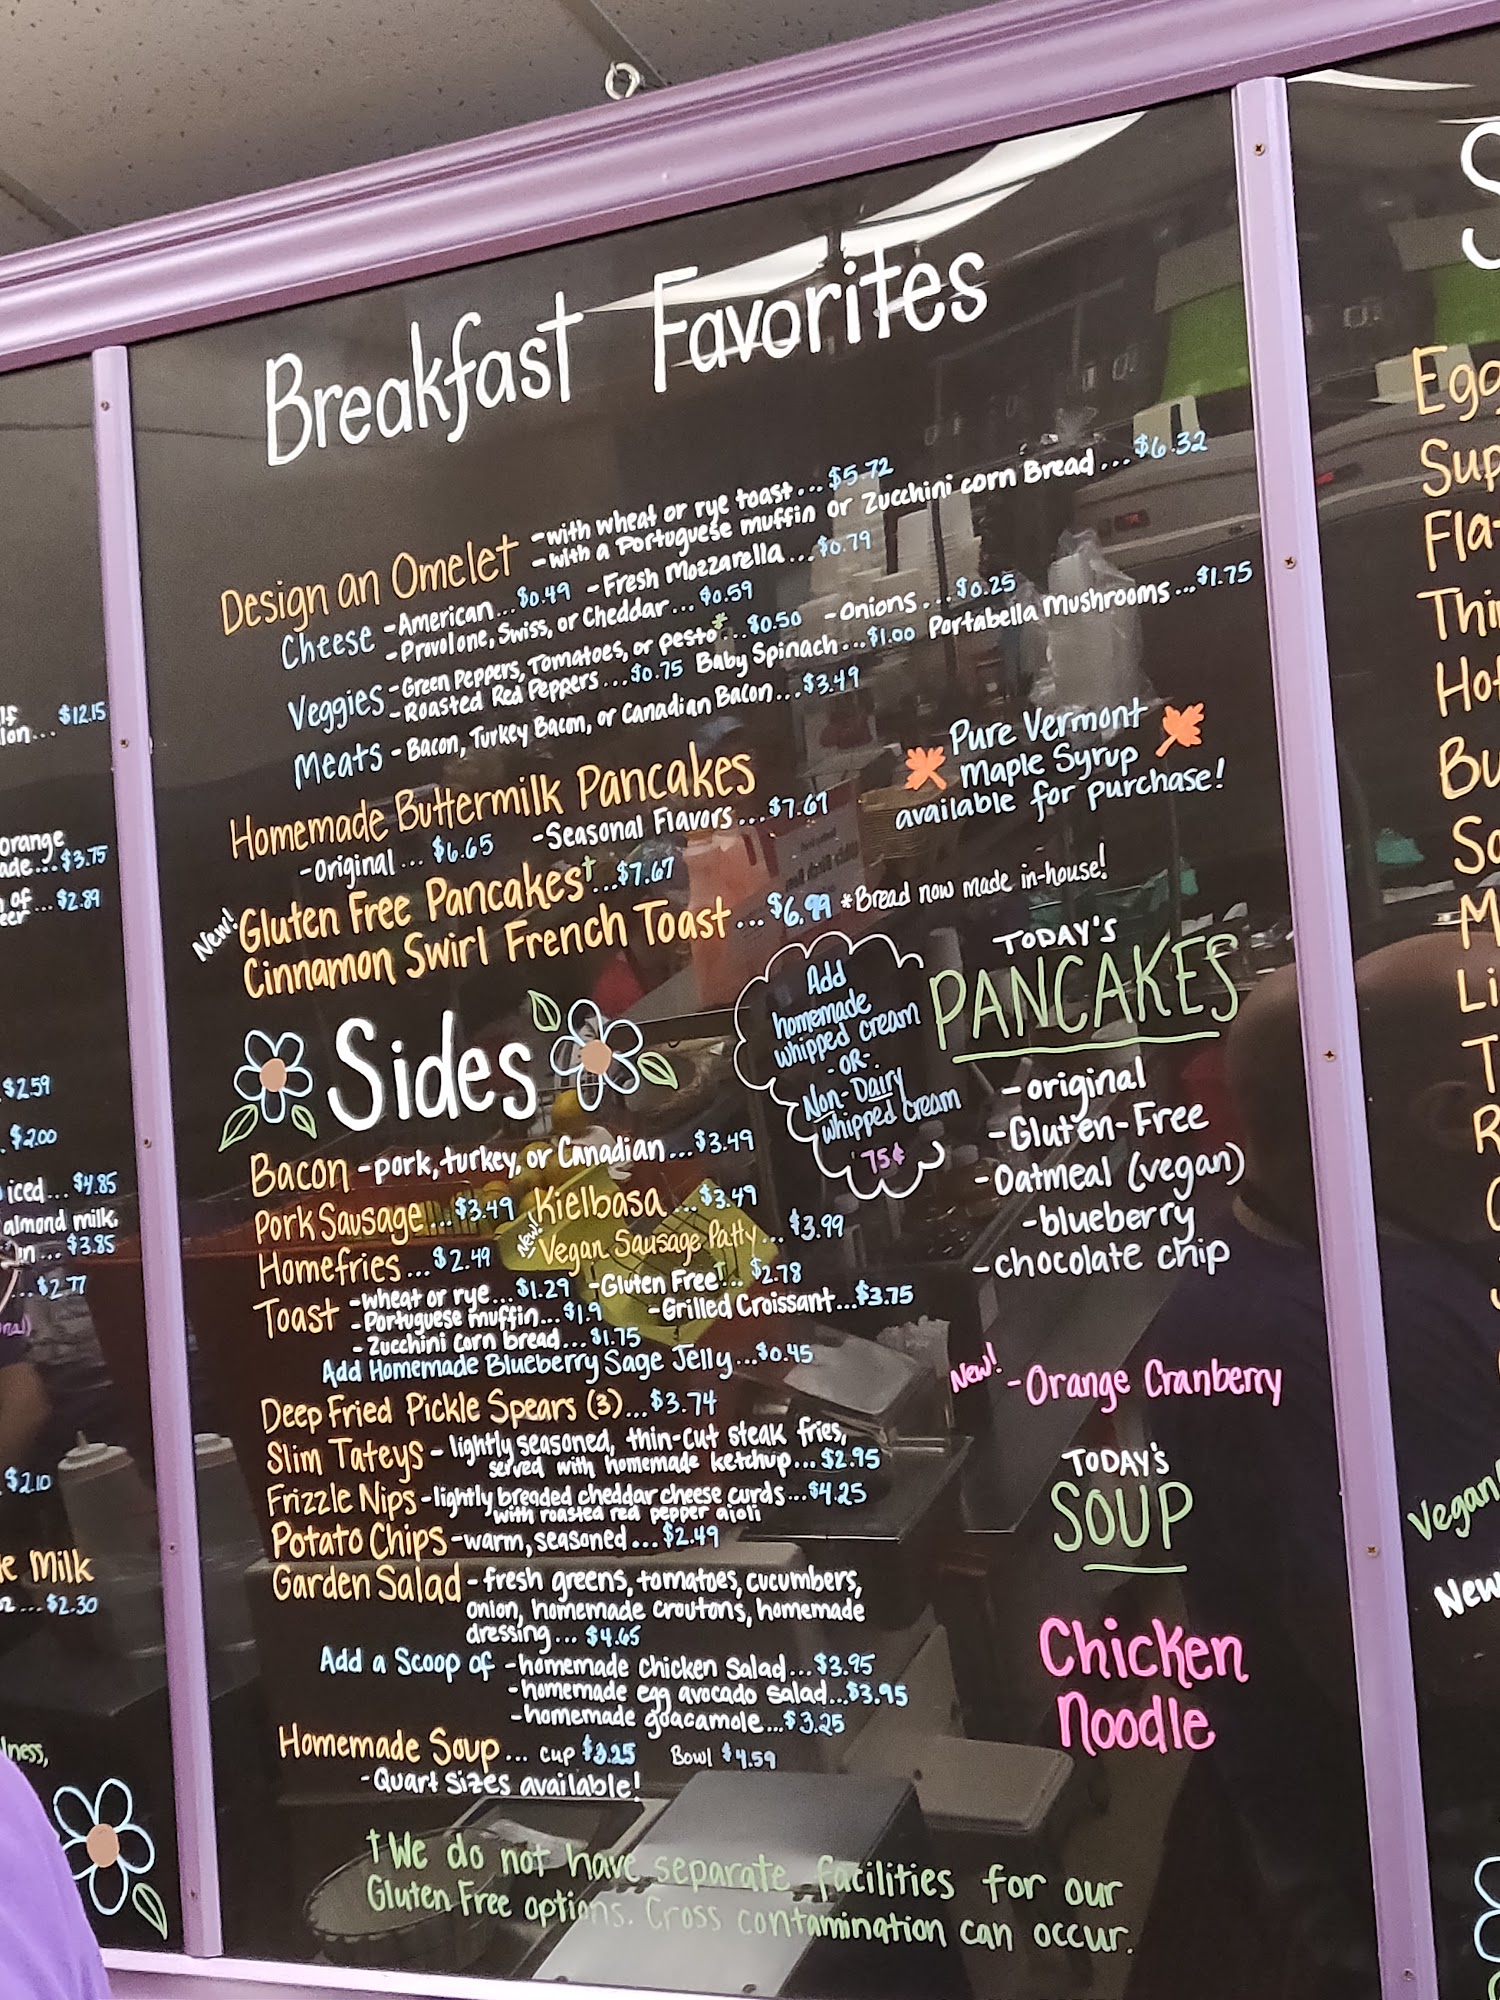 Breakfast Favorites
Design an Omelet -with wheat or rye toast... $5.72
-with a Portuguese muffin or Zucchini corn Bread... $6.32
Cheese -American... $0.49 -Fresh Mozzarella... $0.79
-Provolone, Swiss, or Cheddar... $0.59
Veggies -Green Peppers, Tomatoes, or pesto*... $0.50 -Onions... $0.25
-Roasted Red Peppers... $0.75 Baby Spinach... $1.00 Portabella Mushrooms... $1.75
Meats - Bacon, Turkey Bacon, or Canadian Bacon... $3.49
Pure Vermont
Maple Syrup
available for purchase!
Homemade Buttermilk Pancakes
-Original... $6.65 -Seasonal Flavors... $7.67
New! Gluten Free Pancakes†... $7.67
Cinnamon Swirl French Toast... $6.99 *Bread now made in-house!
Add
homemade
whipped cream
-OR-
Non-Dairy
whipped cream
75¢
TODAY'S
PANCAKES
-original
-Gluten-Free
-Oatmeal (vegan)
-blueberry
-chocolate chip
New! -Orange Cranberry
TODAY'S
SOUP
Chicken
Noodle
Sides
Bacon -pork, turkey, or Canadian... $3.49
Pork Sausage... $3.49 Kielbasa... $3.49
Homefries... $2.49 New! Vegan Sausage Patty... $3.99
Toast -wheat or rye... $1.29 -Gluten Free†... $2.78
-Portuguese muffin... $1.9 -Grilled Croissant... $3.75
- Zucchini Corn bread... $1.75
Add Homemade Blueberry Sage Jelly... $0.45
Deep Fried Pickle Spears (3)... $3.74
Slim Tateys - lightly seasoned, thin-cut steak fries,
served with homemade ketchup... $2.95
Frizzle Nips -lightly breaded cheddar cheese curds... $4.25
with roasted red pepper aioli
Potato Chips -warm, seasoned... $2.49
Garden Salad -fresh greens, tomatoes, cucumbers,
onion, homemade croutons, homemade
dressing... $4.65
Add a Scoop of -homemade chicken salad... $3.95
-homemade egg avocado salad... $3.95
-homemade guacamole... $3.25
Homemade Soup... cup $3.25 Bowl $4.59
-Quart Sizes available!
†We do not have separate facilities for our
Gluten Free options. Cross contamination can occur.
$12.15
orange
$3.75
of
$2.89
$2.59
$2.00
iced... $4.85
almond milk,
$3.85
$2.77
$2.10
Milk
$2.30
Vegan
New